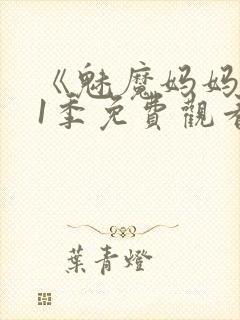 《魅魔妈妈
1季免費觀看
葉青燈